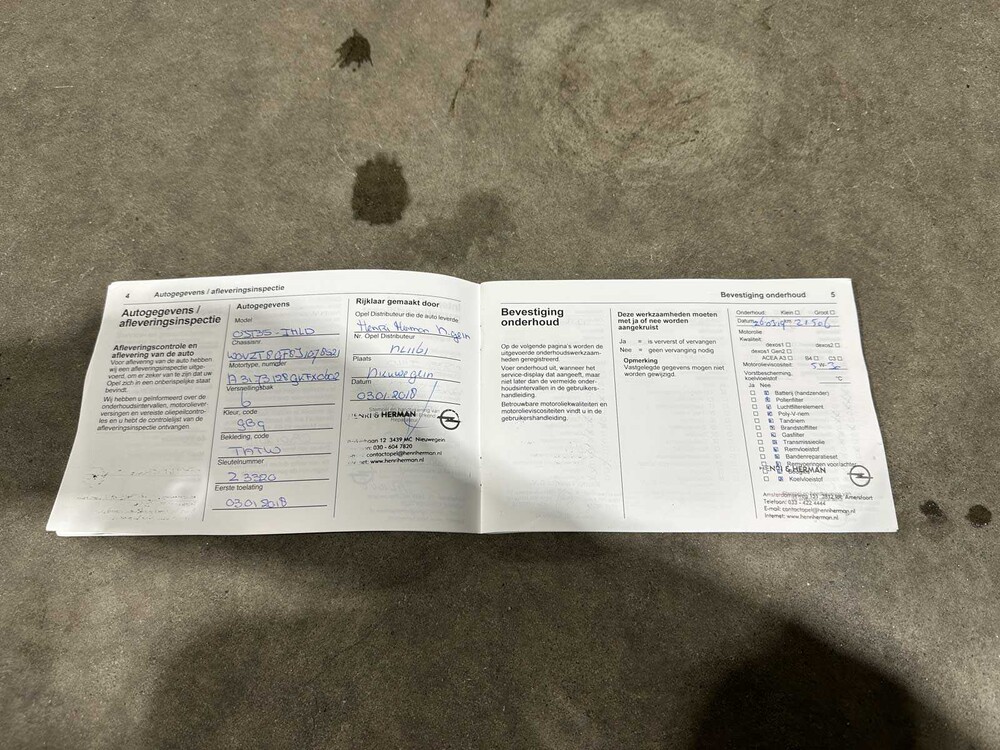 4 Autogegevens / afleveringsinspectie
Autogegevens /
afleveringsinspectie
Afleveringscontrole en
aflevering van de auto
Voor aflevering van de auto hebben
wij een afleveringsinspectie uitge-
voerd, om er zeker van te zijn dat uw
Opel zich in een onberispelijke staat
bevindt.
Wij hebben u geïnformeerd over de
onderhoudsintervallen, motoroliever-
versingen en vereiste oliepeilcontro-
les en u hebt de controlelijst van de
afleveringsinspectie ontvangen.
Autogegevens
Model
Chassisnr.
Motortype, nummer
Versnellingsbak
6
Kleur, code
GBG
Bekleding, code
TATW
Sleutelnummer
Eerste toelating
03 01 2018
Rijklaar gemaakt door
Opel Distributeur die de auto leverde
Henri Herman N.gein
Nr. Opel Distributeur
NL1161
Plaats
Nieuwegein
Datum
03 01 2018
HENRI & HERMAN
12 3439 MC Nieuwegein
030 - 604 7820
contactopel@henriherman.nl
www.henriherman.nl
Bevestiging onderhoud 5
Bevestiging
onderhoud
Op de volgende pagina's worden de
uitgevoerde onderhoudswerkzaam-
heden geregistreerd.
Voer onderhoud uit, wanneer het
service-display dat aangeeft, maar
niet later dan de vermelde onder-
houdsintervallen in de gebruikers-
handleiding.
Betrouwbare motoroliekwaliteiten en
motorolieviscositeiten vindt u in de
gebruikershandleiding.
Deze werkzaamheden moeten
met ja of nee worden
aangekruist
Ja = is ververst of vervangen
Nee = geen vervanging nodig
Opmerking
Vastgelegde gegevens mogen niet
worden gewijzigd.
Onderhoud: Klein Groot
Datum 260319 km 21506
Motorolie
Kwaliteit:
dexos1 dexos2
dexos1 Gen2
ACEA A3 B4 C3
Motorolieviscositeit: 5 W- 30
Vorstbescherming,
koelvloeistof °C
Ja Nee
Batterij (handzender)
Pollenfilter
Luchtfilterelement
Poly-V-riem
Tandriem
Brandstoffilter
Gasfilter
Transmissieolie
Remvloeistof
Bandenreparatieset
Remvoeringen voor/achter
Koelvloeistof
HENRI & HERMAN
Amersfoort
Telefoon: 033 - 422 4444
E-mail: contactopel@henriherman.nl
Internet: www.henriherman.nl